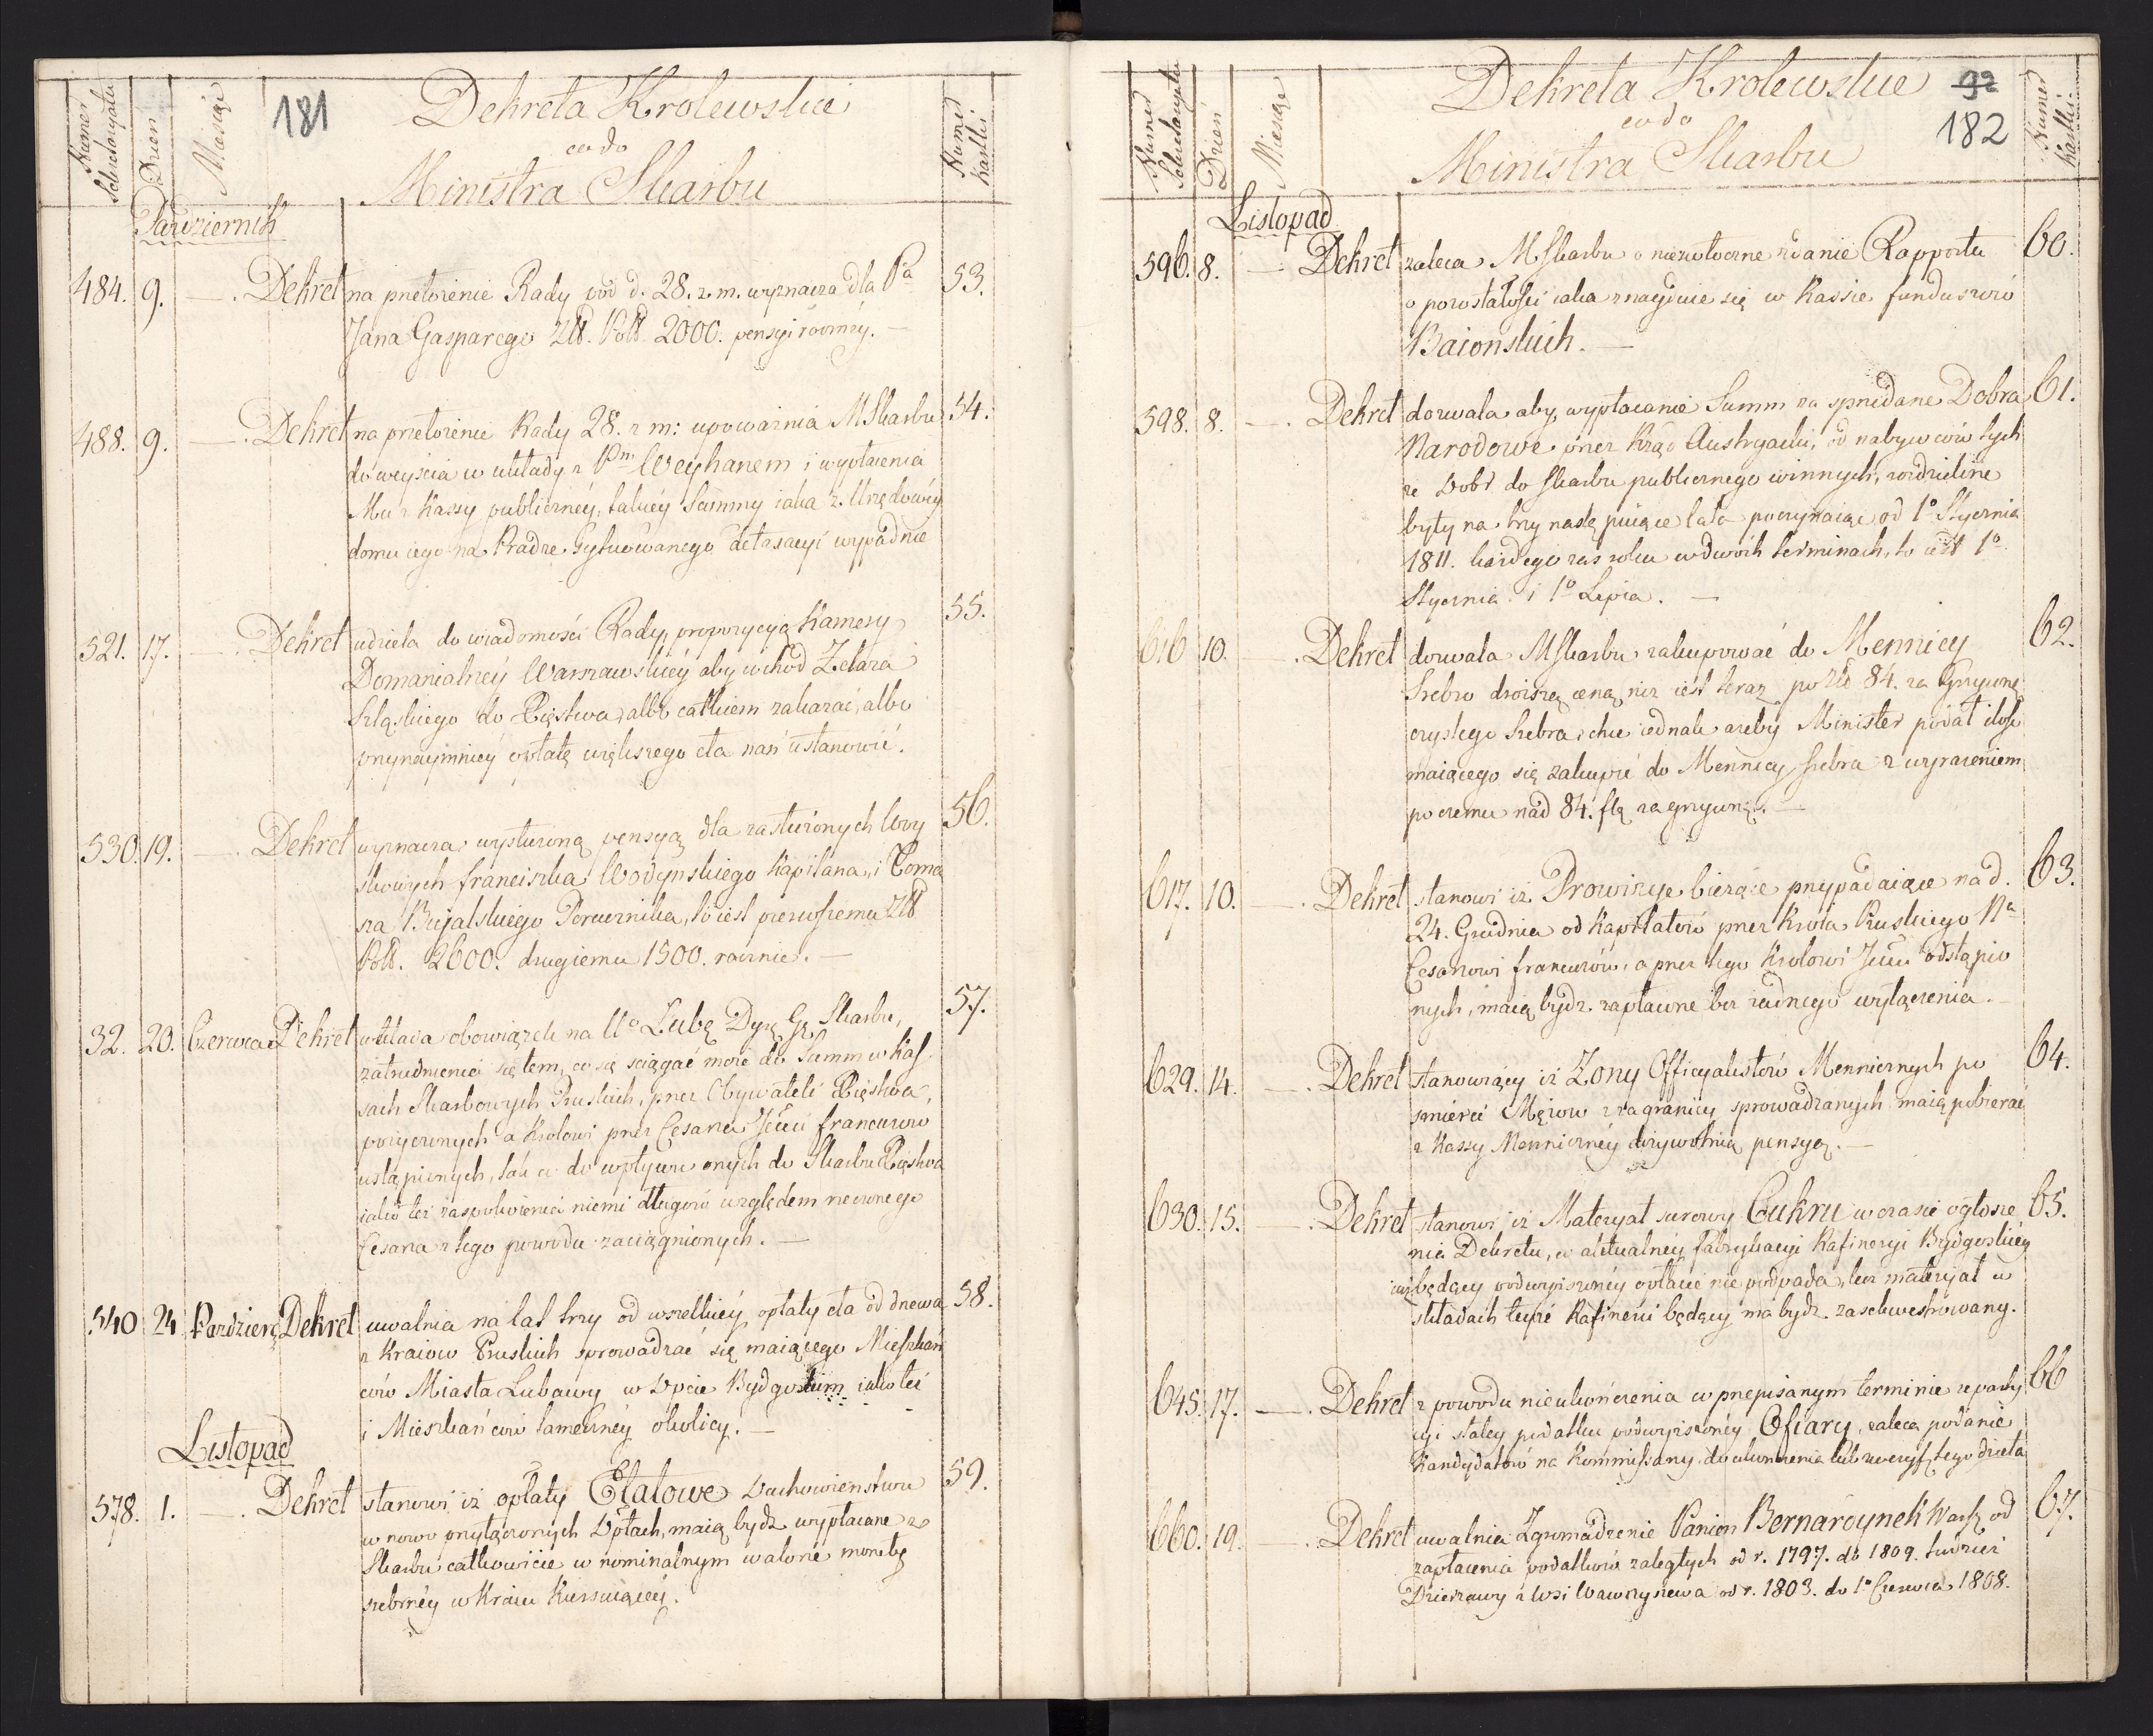 Numer Sekretaryatu
Dzień
Miesiąc
181
Dekreta Krolewskie
co do
Ministra Skarbu
Numer Kartki
Pazdziernik
484. 9. — . Dekret na przełożenie Rady pod d. 28. z. m. wyznacza dla Pa 53.
Jana Gasparego Złł. Poll. 2000. pensyi roczney. —
488. 9. — . Dekret na przełożenie Rady 28. z m: upoważnia M Skarbu 54.
do weyścia w układy z Pm Weyhanem i wypłacenia
Mu z Kassy publiczney, takiey Summy iaka z Urzędowey
domu iego na Pradze sytuowanego detaxacyi wypadnie
521. 17. — . Dekret udziela do wiadomości Rady, propozycyą Kamery 55.
Domanialney Warszawskiey aby wchod Żelaza
Szląskiego do Xięstwa, albo całkiem zakazać, albo
przynaymniey opłatę większego cła nań ustanowić.
530. 19. — . Dekret wyznacza wysłużoną pensyą dla zasłużonych Woy 56.
skowych franciszka Wodzynskiego Kapitana, i Toma
sza Bujalskiego Porucznika, to iest pierwszemu Złł
Poll. 2600. drugiemu 1500. rocznie. —
32. 20. Czerwca Dekret wkłada obowiązek na Uo Łubę Dyrę Gę Skarbu, 57.
zatrudnienia się tem, co się sciągać może do Summ w Kas
sach Skarbowych Pruskich, przez Obywateli Xięstwa,
pożyczonych a Krolowi przez Cesarza Jmci francuzow
ustąpionych, tak co do wpływu onych do Skarbu Xięstwa
iako też zaspokoienia niemi długow względem rzeczonego
Cesarza z tego powodu zaciągnionych. —
540 24 Pazdzierę Dekret uwalnia na lat trzy od wszelkiey opłaty cła od drzewa 58.
z Kraiow Pruskich sprowadzać się maiącego Mieszkań
cow Miasta Lubawy w Dpcie Bydgoskim iako też
i Mieszkańcow tameczney okolicy. —
Listopad
578. 1. — . Dekret stanowi iż opłaty Etatowe Duchowieństwu 59.
w nowo przyłączonych Dptach, maią bydź wypłacane ze
Skarbu całkowicie w nominalnym walorze monetą
srebrney w Kraiu Kursuiącey.
Numer Sekretaryatu
Dzień
Miesiąc
Dekreta Krolewskie
co do
Ministra Skarbu
92
182
Numer Kartki
Listopad
596. 8. — . Dekret zaleca M Skarbu o niezwłoczne zdanie Rapportu 60.
o pozostałości iaka znayduie się w Kassie funduszow
Baionskich. —
598. 8. — . Dekret dozwala aby wypłacanie Summ za sprzedane Dobra 61.
Narodowe przez Rząd Austryacki, od nabywcow tych
ze Dobr do Skarbu publicznego winnych, rozdzielone
były na trzy następuiące lata poczynaiąc od 1o Stycznia
1811. każdego zas roku w dwoch terminach, to iest 1o
Stycznia i 1o Lipca. —
616 10. — . Dekret dozwala M Skarbu zakupować do Mennicy 62.
Srebro droższą ceną niż iest teraz po Złł 84. za Grzywnę
czystego Srebra, chce iednak ażeby Minister podał ilość
maiącego się zakupić do Mennicy Srebra z wyrażeniem
po czemu nad 84. flę za grzywnę. —
617. 10. — . Dekret stanowi iż Prowizye bieżące przypadaiące na d. 63.
24. Grudnia od Kapitałow przez Krola Pruskiego Na
Cesarzowi francuzow, a przez tego Krolowi Jmci odstąpio
nych, maią bydz zapłacone bez żadnego wyłączenia. —
629. 14. — . Dekret stanowiący iż Zony Officyalistow Menniczych po 64.
smierci Mężow z zagranicy sprowadzanych maią pobierać
z Kassy Menniczney dożywotnią pensyą. —
630. 15. — . Dekret stanowi iż Materyał surowy Cukru w czasie ogłosze 65.
nia Dekretu, w aktualney fabrykacyi Rafineryi Bydgoskiey
iuż będący podwyższoney opłacie nie podpada, lecz materyał w
składach teyże Rafineryi będący ma bydz zasekwestrowany.
645. 17. — . Dekret z powodu nieukończenia w przepisanym terminie repartycy 66
yi stałey podatku podwyższoney Ofiary, zaleca podanie
Kandydatow na Kommissarzy do ukończenia lub zweryf. tego dzieła
660. 19. — . Dekret uwalnia Zgromadzenie Panien Bernardynek Warsz od 67.
zapłacenia podatkow zaległych od r. 1797. do 1809. tudzież
Dzierzawy z Wsi Wawrzyszewa od r. 1803. do 1o Czerwca 1808.